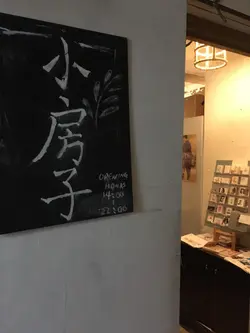 小房子
OPENING
HOURS
14:00
22:00